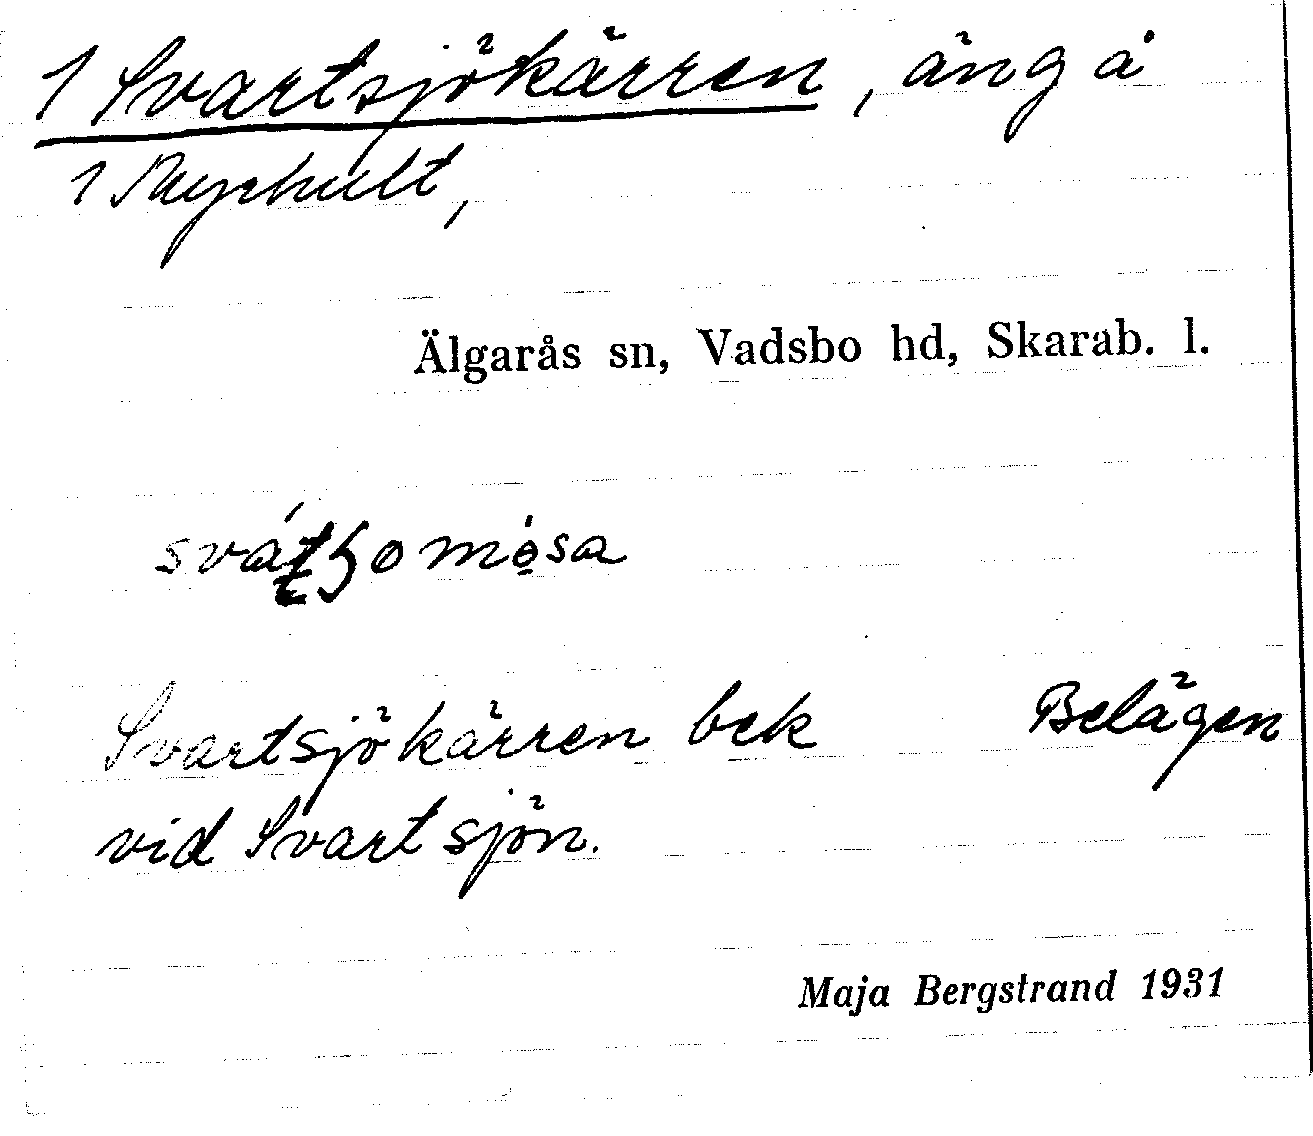 1 Svartsjökärren, äng å
1 Myrhult,
Älgarås sn, Vadsbo hd, Skarab. l.
Svartsjökärren bek Belägen
vid Svartsjön.
Maja Bergstrand 1931